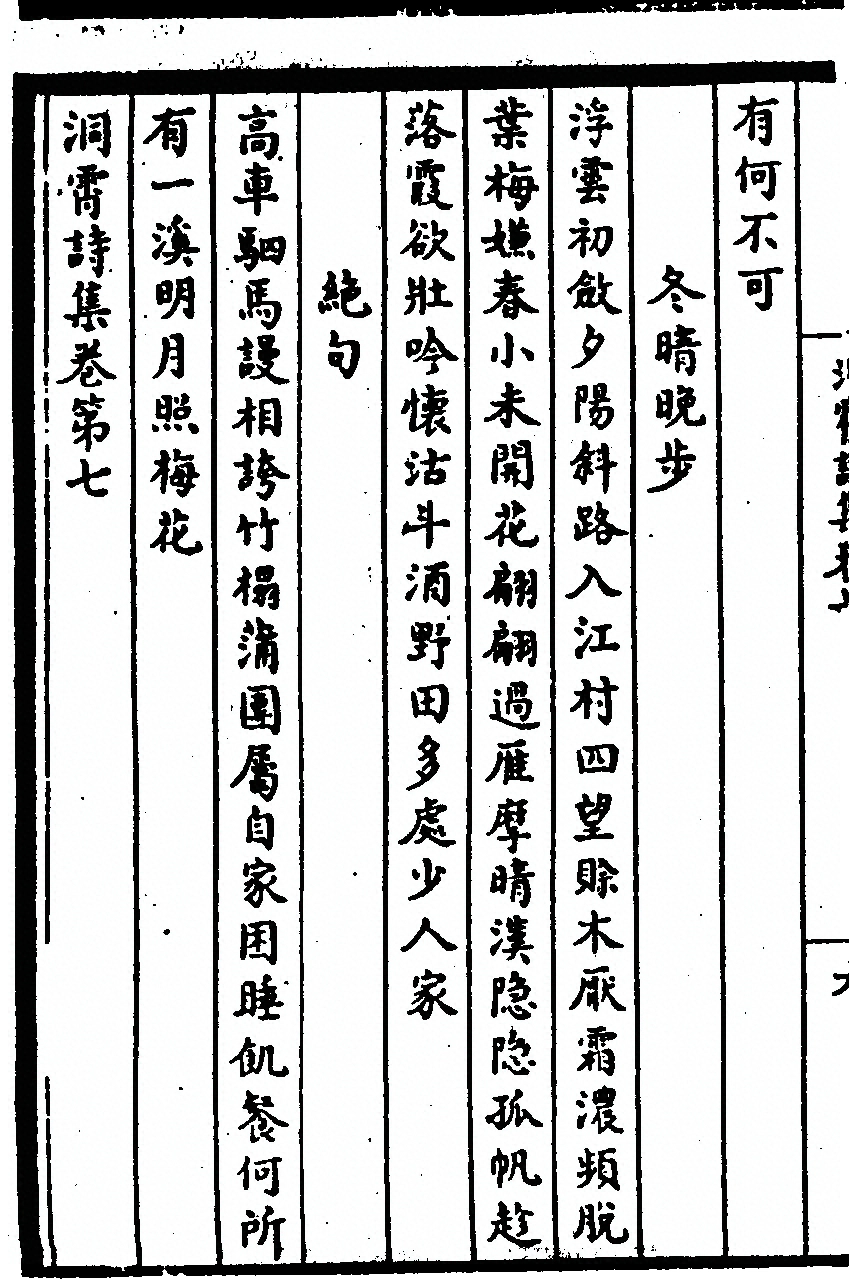 有何不可
冬晴晚步
浮雲初斂夕陽斜路入江村四望賒木厭霜濃頻脫
葉梅嫌春小未開花翩翩過雁摩晴漢隐隐孤帆趁
落霞欲壯吟懷沽斗酒野田多處少人家
絕句
高車駟馬謾相誇竹榻蒲團屬自家困睡飢餐何所
有一溪明月照梅花
洞霄詩集卷第七